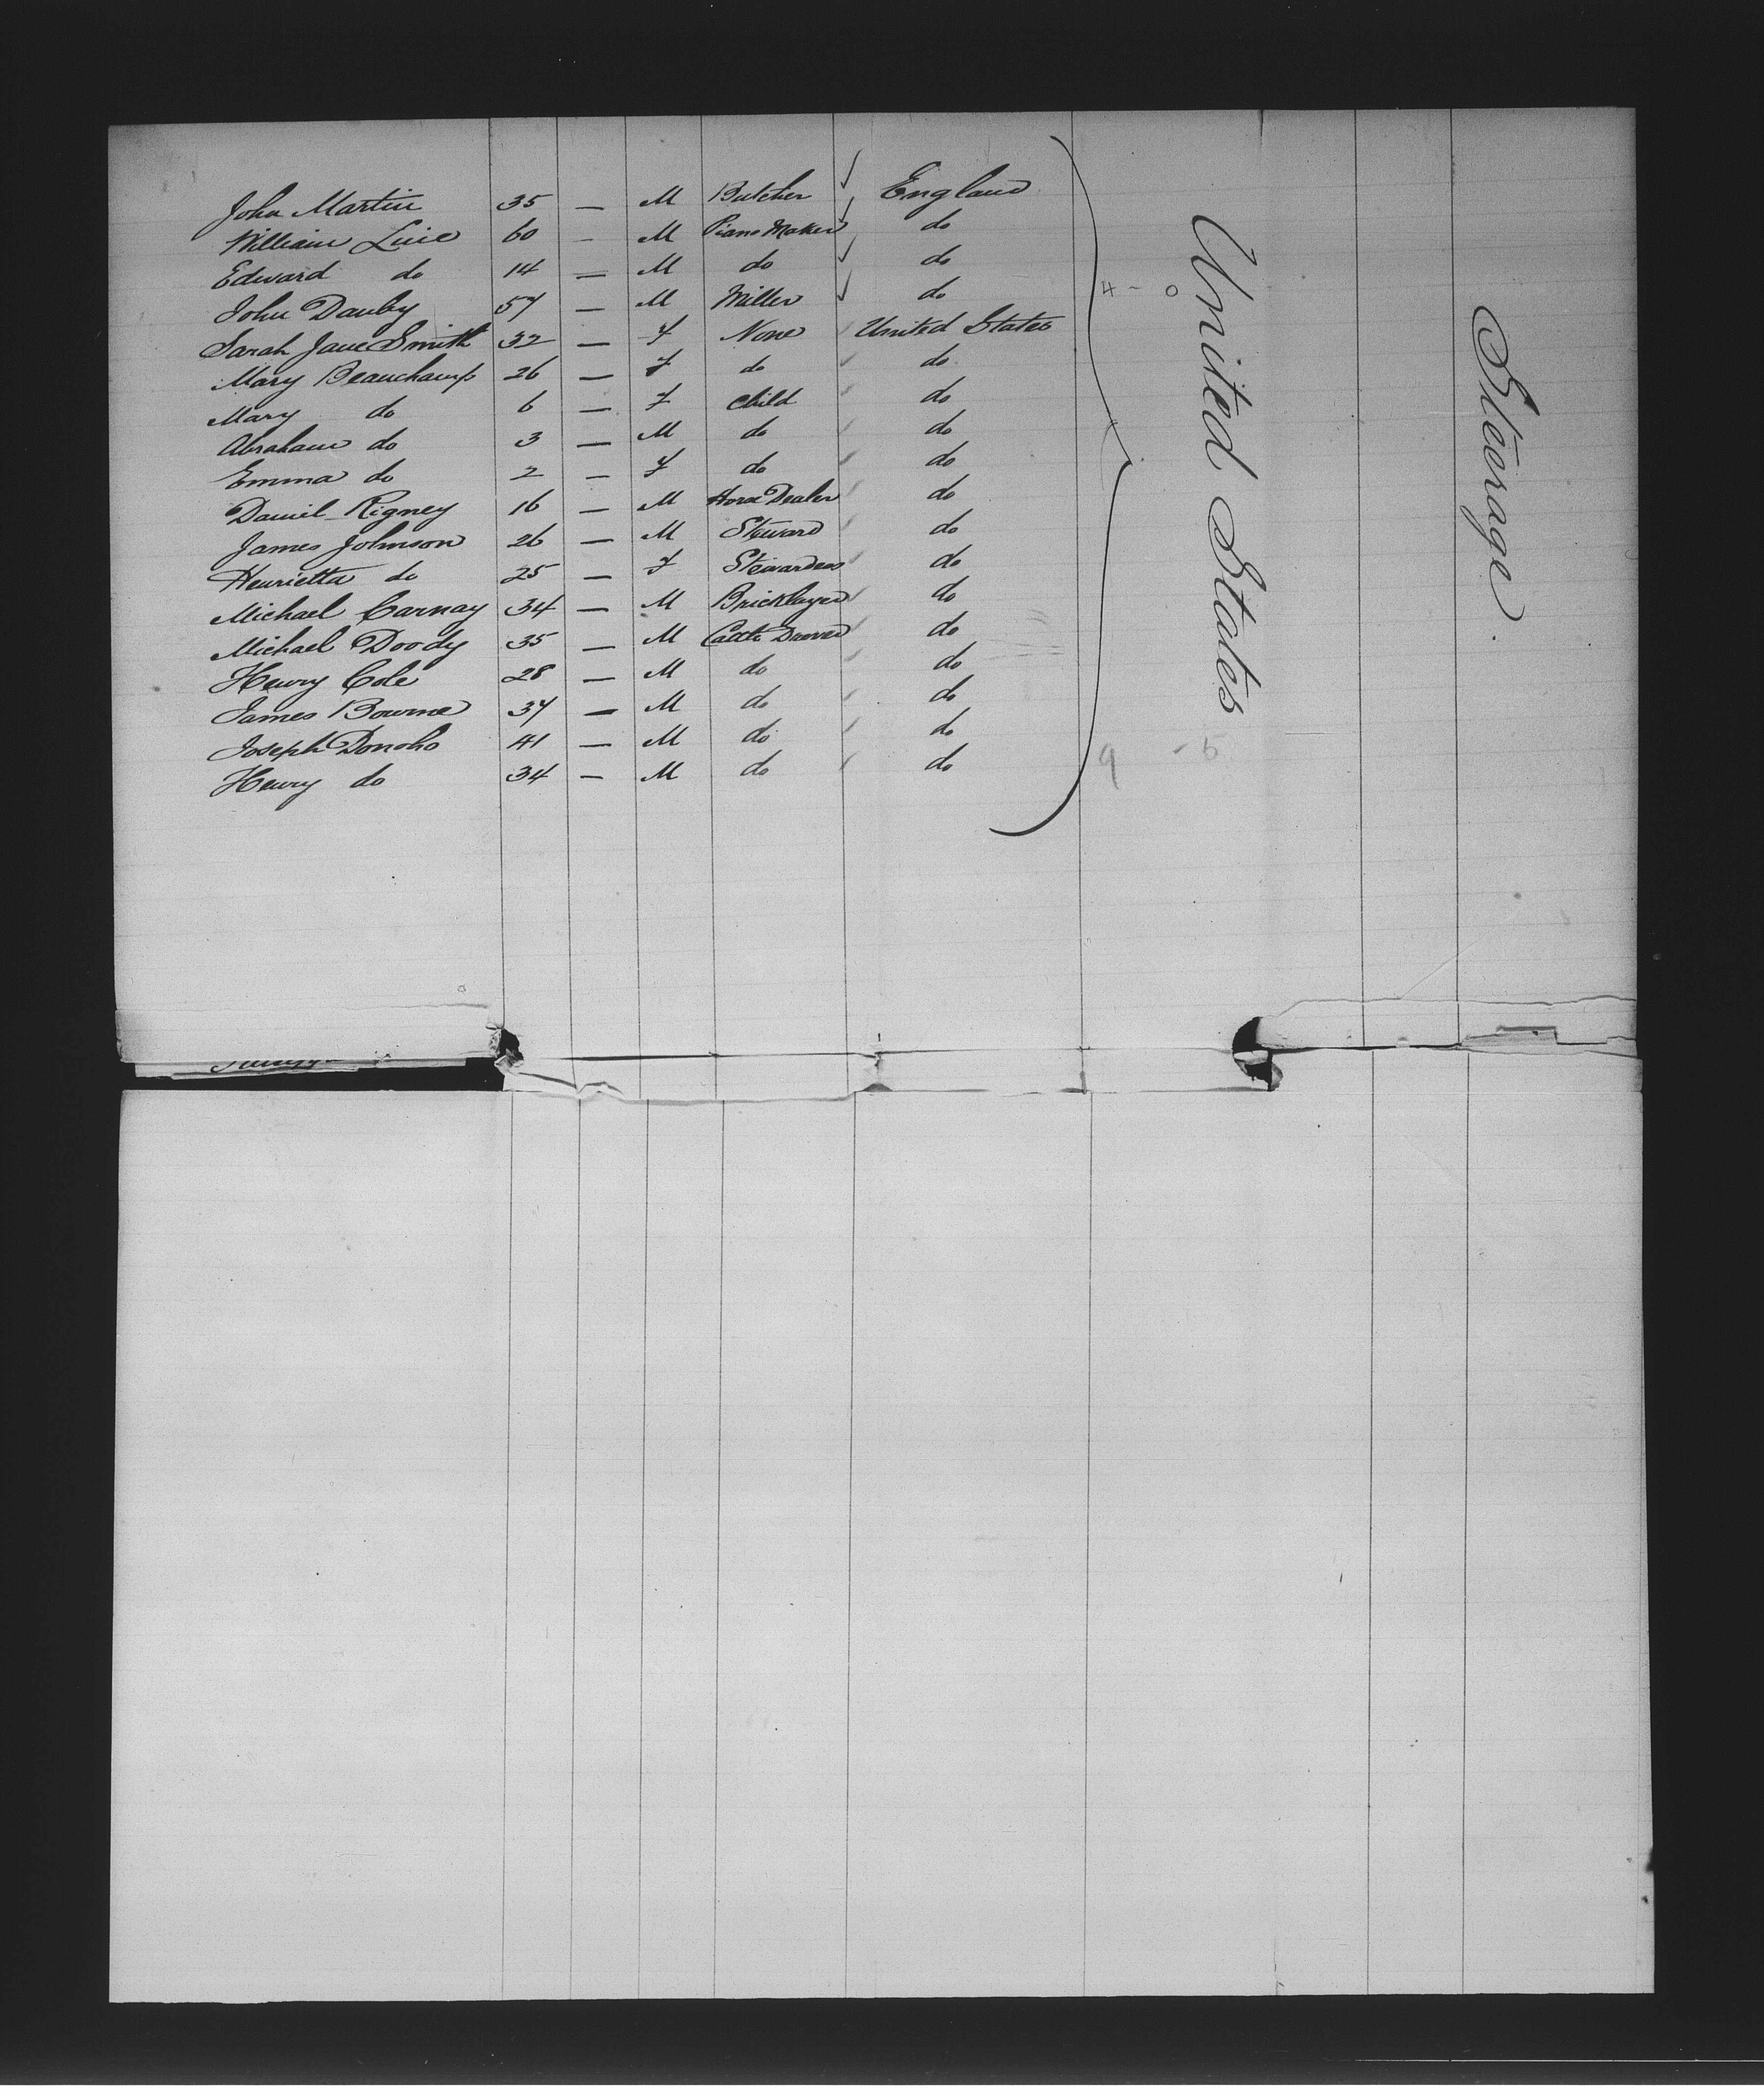 John Martin 35 — M Butcher ✓ England
William Luie 60 — M Piano Maker ✓ do
Edward do 14 — M do ✓ do
John Danby 57 — M Miller ✓ do
Sarah Jane Smith 32 — F None United States
Mary Beauchamp 26 — F do do
Mary do 6 — F Child do
Abraham do 3 — M do do
Emma do 2 — F do do
Daniel Rigney 16 — M Horse Dealer do
James Johnson 26 — M Steward do
Henrietta do 25 — F Stewardess do
Michael Carnay 34 — M Bricklayer do
Michael Doody 35 — M Cattle Drover do
Henry Cole 28 — M do do
James Bourne 37 — M do do
Joseph Donoho 41 — M do do
Henry do 34 — M do do
4 - 0
9 - 5
United States
Steerage.